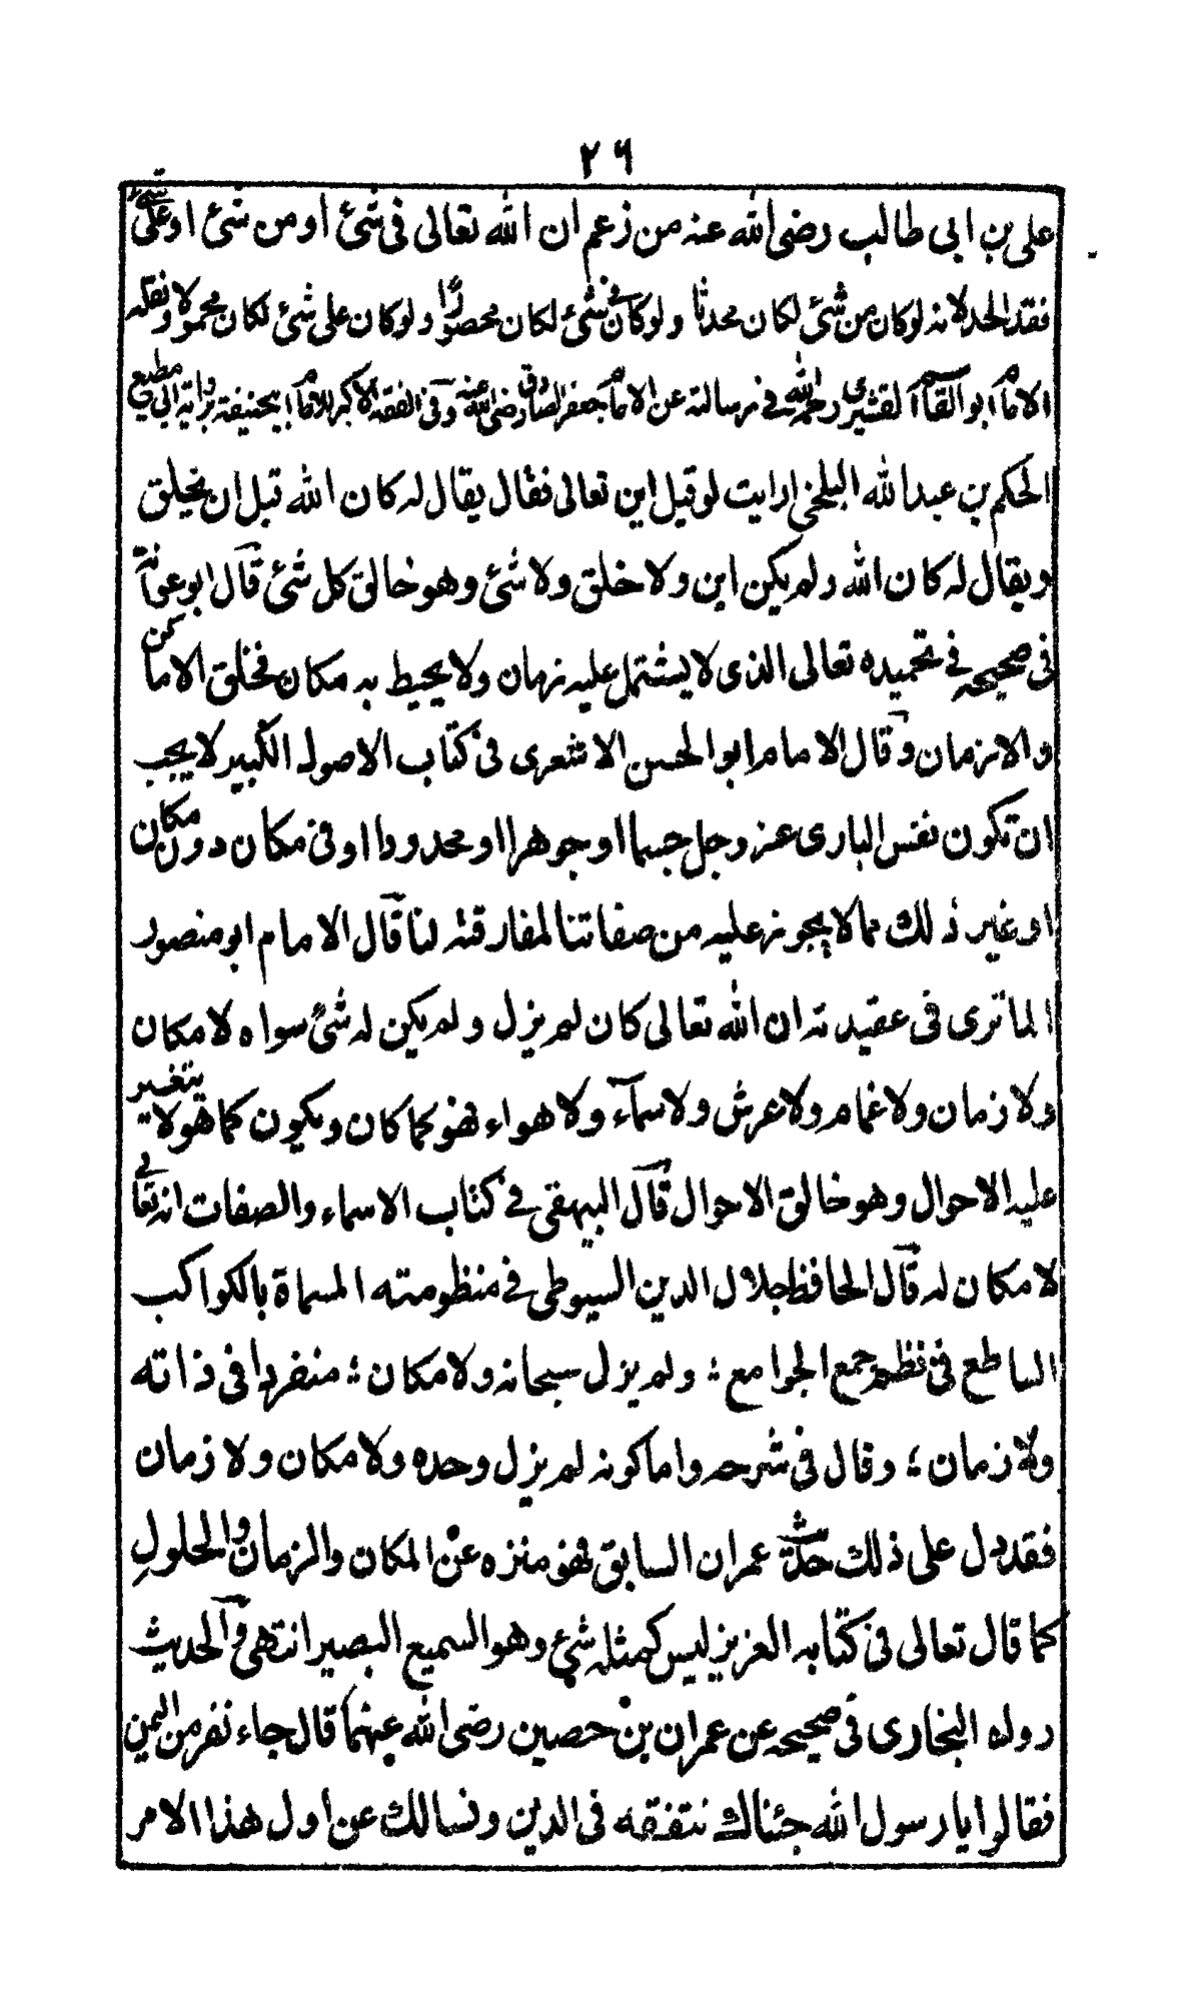 ٢٦
على بن ابى طالب رضى الله عنه من زعم ان الله تعالى فى شئ او من شئ او على شئ
فقد الحد لانه لو كان من شئ لكان محدثا ولو كان فى شئ لكان محصورا ولو كان على شئ لكان محمولا ونقله
الامام ابو القاسم القشيرى رحمه الله فى رسالته عن الامام جعفر الصادق رضى الله عنه وفى الفقه الاكبر للامام ابى حنيفة برواية ابى مطيع
الحكم بن عبد الله البلخى ارايت لو قيل اين تعالى فقال يقال له كان الله قبل ان يخلق
ويقال له كان الله ولم يكن اين ولا خلق ولا شئ وهو خالق كل شئ قال ابو عوانة
فى صحيحه فى تحميده تعالى الذى لا يشتمل عليه زمان ولا يحيط به مكان فخلق الاماكن
والازمان وقال الامام ابو الحسن الاشعرى فى كتاب الاصول الكبير لا يجب
ان تكون نفس البارى عز وجل جسما او جوهرا او محدودا او فى مكان دون مكان
او غير ذلك مما لا يجوز عليه من صفاتنا لمفارقته لنا قال الامام ابو منصور
الماتريدى فى عقيدته ان الله تعالى كان لم يزل ولم يكن له شئ سواه لا مكان
ولا زمان ولا غمام ولا عرش ولا سماء ولا هواء فهو كما كان ويكون كما هو لا يتغير
عليه الاحوال وهو خالق الاحوال قال البيهقى فى كتاب الاسماء والصفات انه تعالى
لا مكان له قال الحافظ جلال الدين السيوطى فى منظومته المسماة بالكواكب
الساطع فى نظم جمع الجوامع ؛ ولم يزل سبحانه ولا مكان ؛ منفردا فى ذاته
ولا زمان ؛ وقال فى شرحه واما كونه لم يزل وحده ولا مكان ولا زمان
فقد دل على ذلك حديث عمران السابق فهو منزه عن المكان والزمان والحلول
كما قال تعالى فى كتابه العزيز ليس كمثله شئ وهو السميع البصير انتهى والحديث
رواه البخارى فى صحيحه عن عمران بن حصين رضى الله عنهما قال جاء نفر من اليمن
فقالوا يا رسول الله جئناك نتفقه فى الدين ونسالك عن اول هذا الامر